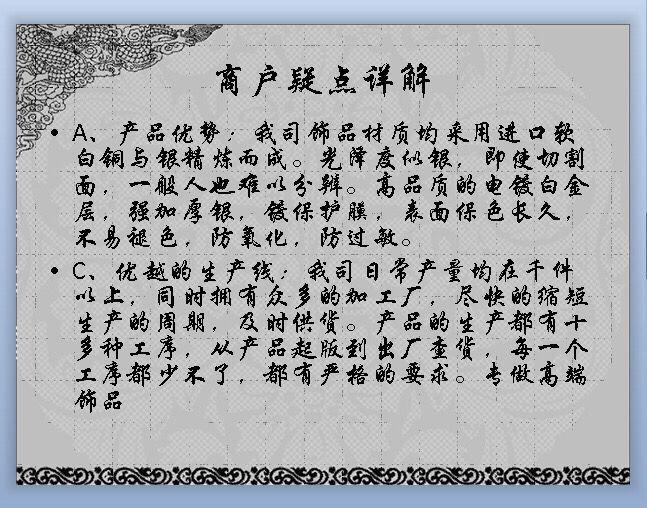 商户疑点详解
• A、产品优势：我司饰品材质均采用进口软
白铜与银精炼而成。光泽度似银，即使切割
面，一般人也难以分辨。高品质的电镀白金
层，强加厚银，镀保护膜，表面保色长久，
不易褪色，防氧化，防过敏。
• C、优越的生产线：我司日常产量均在千件
以上，同时拥有众多的加工厂，尽快的缩短
生产的周期，及时供货。产品的生产都有十
多种工序，从产品起版到出厂查货，每一个
工序都少不了，都有严格的要求。专做高端
饰品